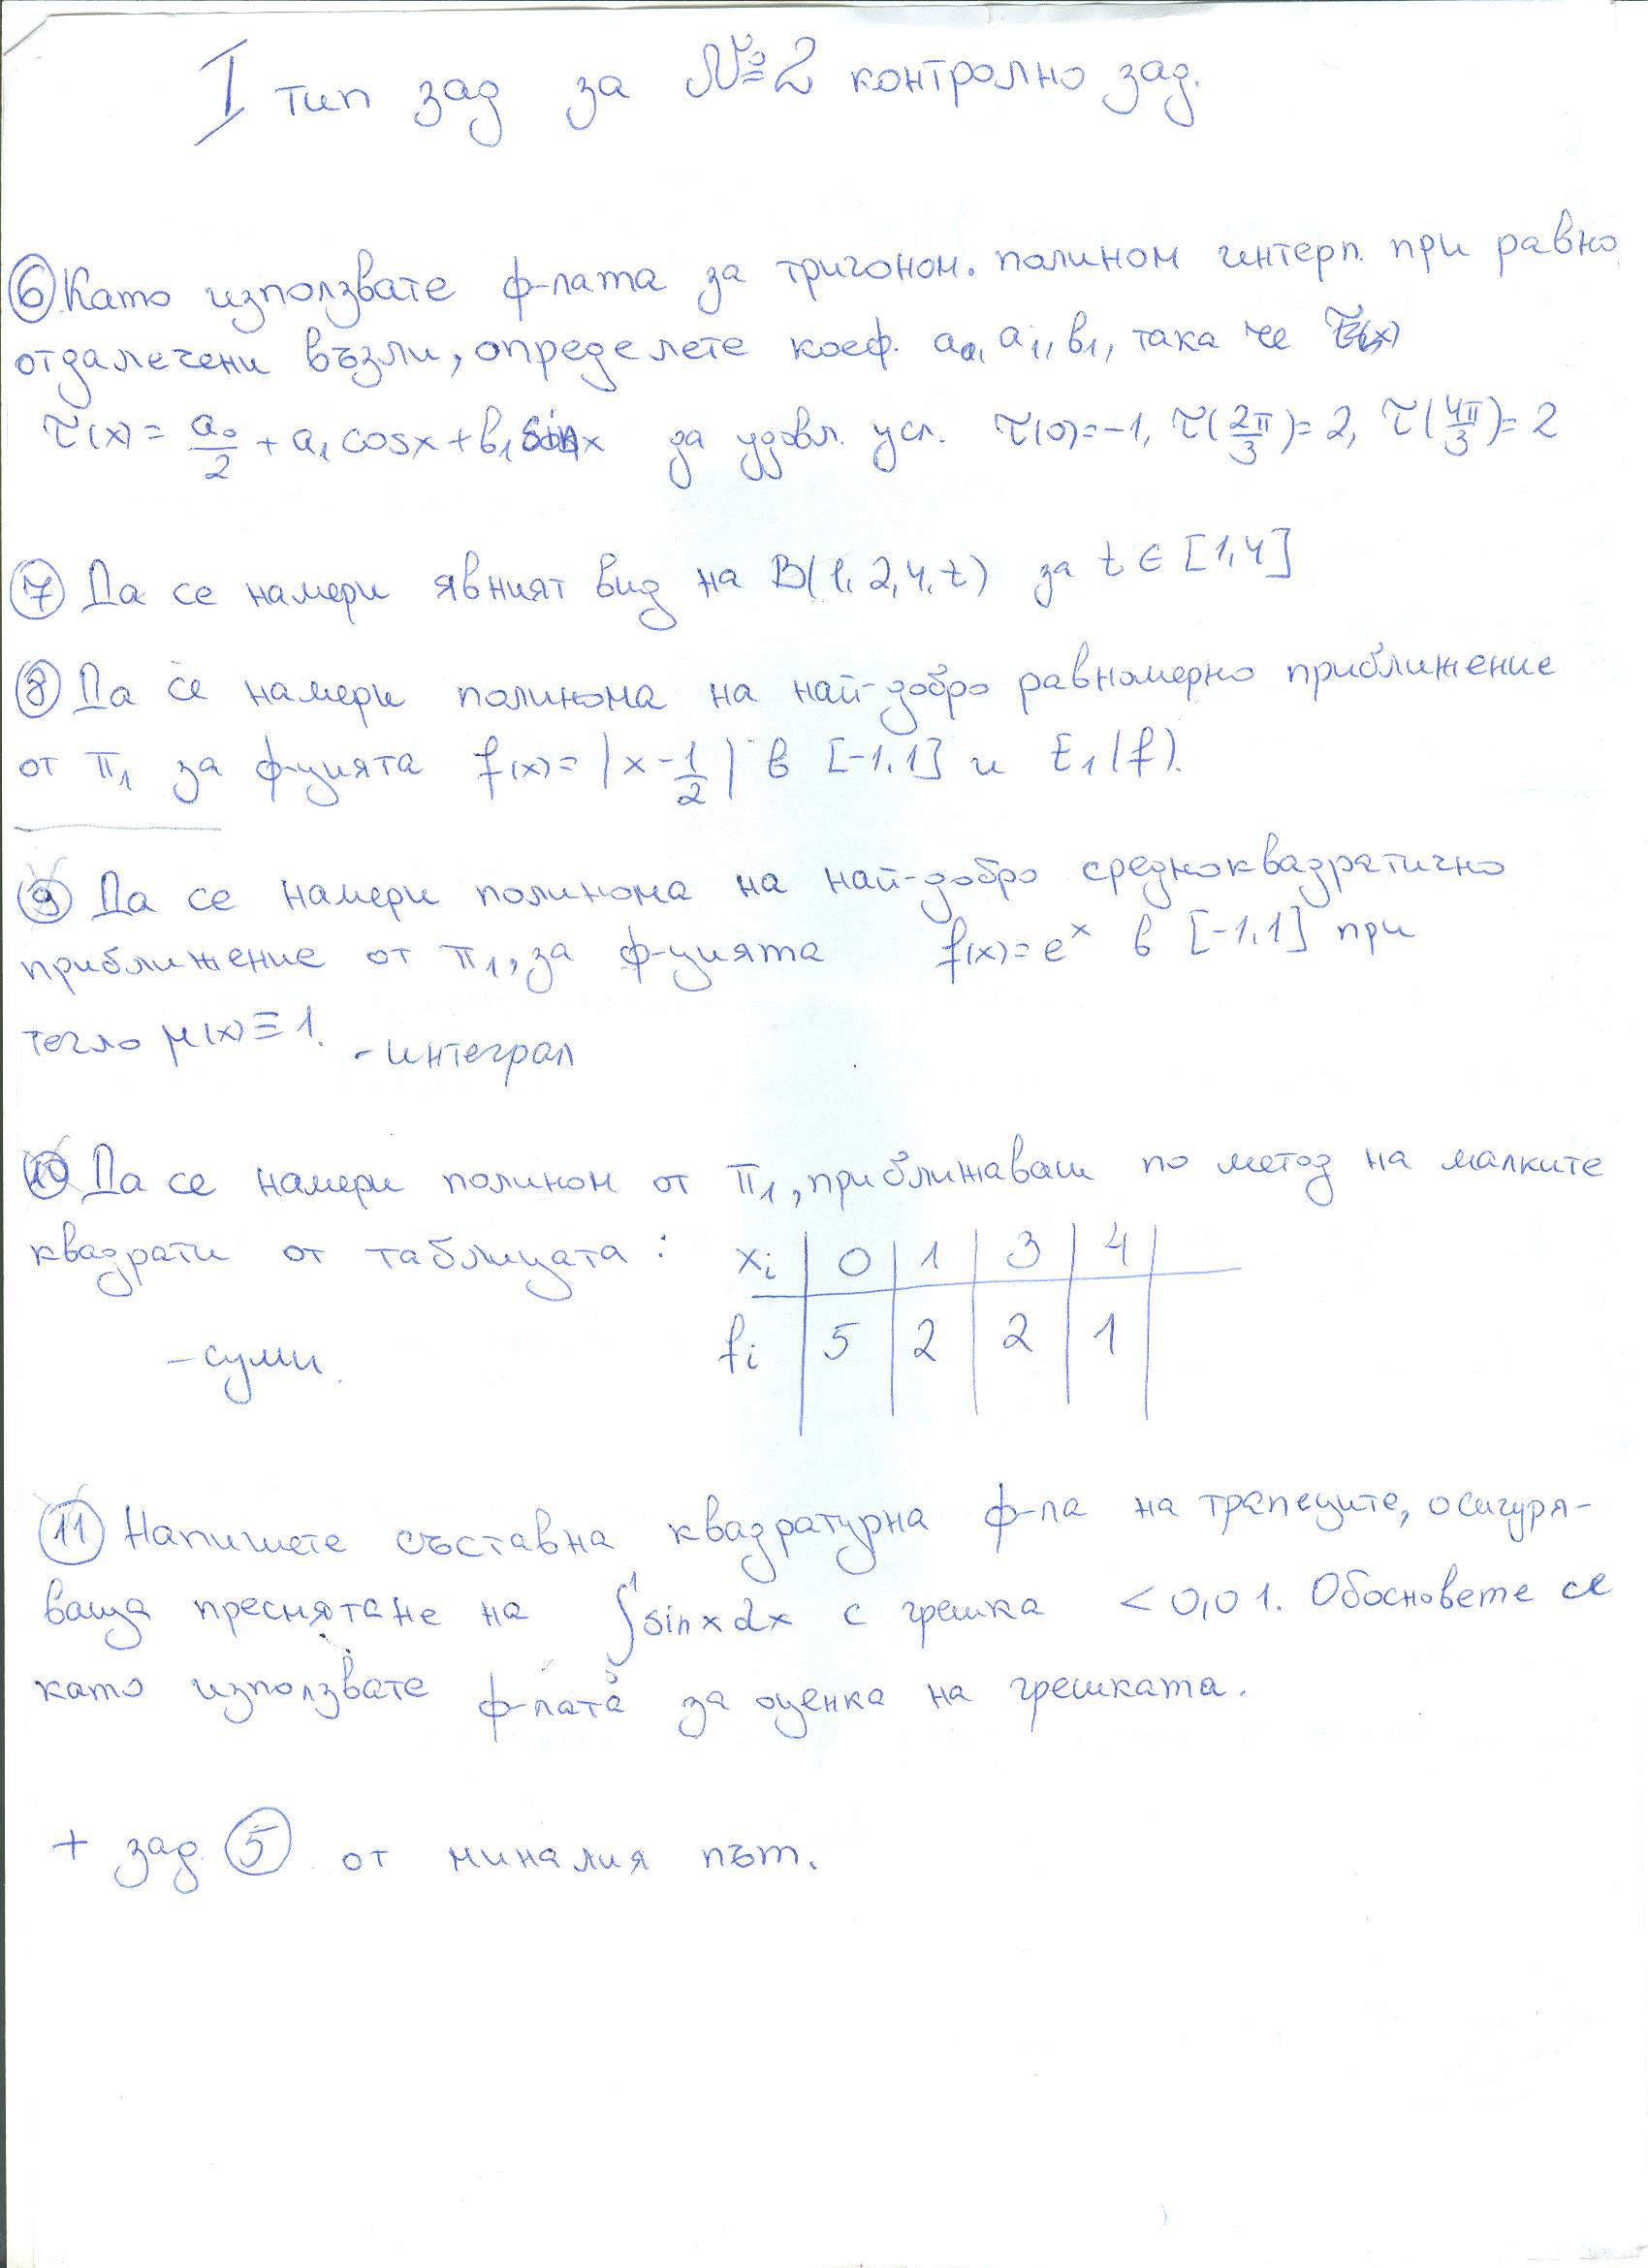 I тип зад за №2 контролно зад.
⑥ Като използвате ф-лата за тригоном. полином интерп. при равно
отдалечени възли, определете коеф. a₀, a₁, b₁, така че τ(x)
τ(x) = a₀/2 + a₁ cosx + b₁ sinx да удовл. усл. τ(0)=-1, τ(2π/3)=2, τ(4π/3)=2
⑦ Да се намери явният вид на B(1,2,4,t) за t∈[1,4]
⑧ Да се намери полинома на най-добро равномерно приближение
от π₁ за ф-цията f(x)=|x-1/2| в [-1,1] и E₁(f).
⑨ Да се намери полинома на най-добро средноквадратично
приближение от π₁, за ф-цията f(x)=eˣ в [-1,1] при
тегло μ(x)≡1. - интеграл
⑩ Да се намери полином от π₁, приближаващ по метод на малките
квадрати от таблицата: xᵢ | 0 | 1 | 3 | 4 |
- суми. fᵢ | 5 | 2 | 2 | 1 |
⑪ Напишете съставна квадратурна ф-ла на трапеците, осигуря-
ваща пресмятане на ∫₀¹ sinxdx с грешка < 0,01. Обосновете се
като използвате ф-лата за оценка на грешката.
+ зад. ⑤ от миналия път.